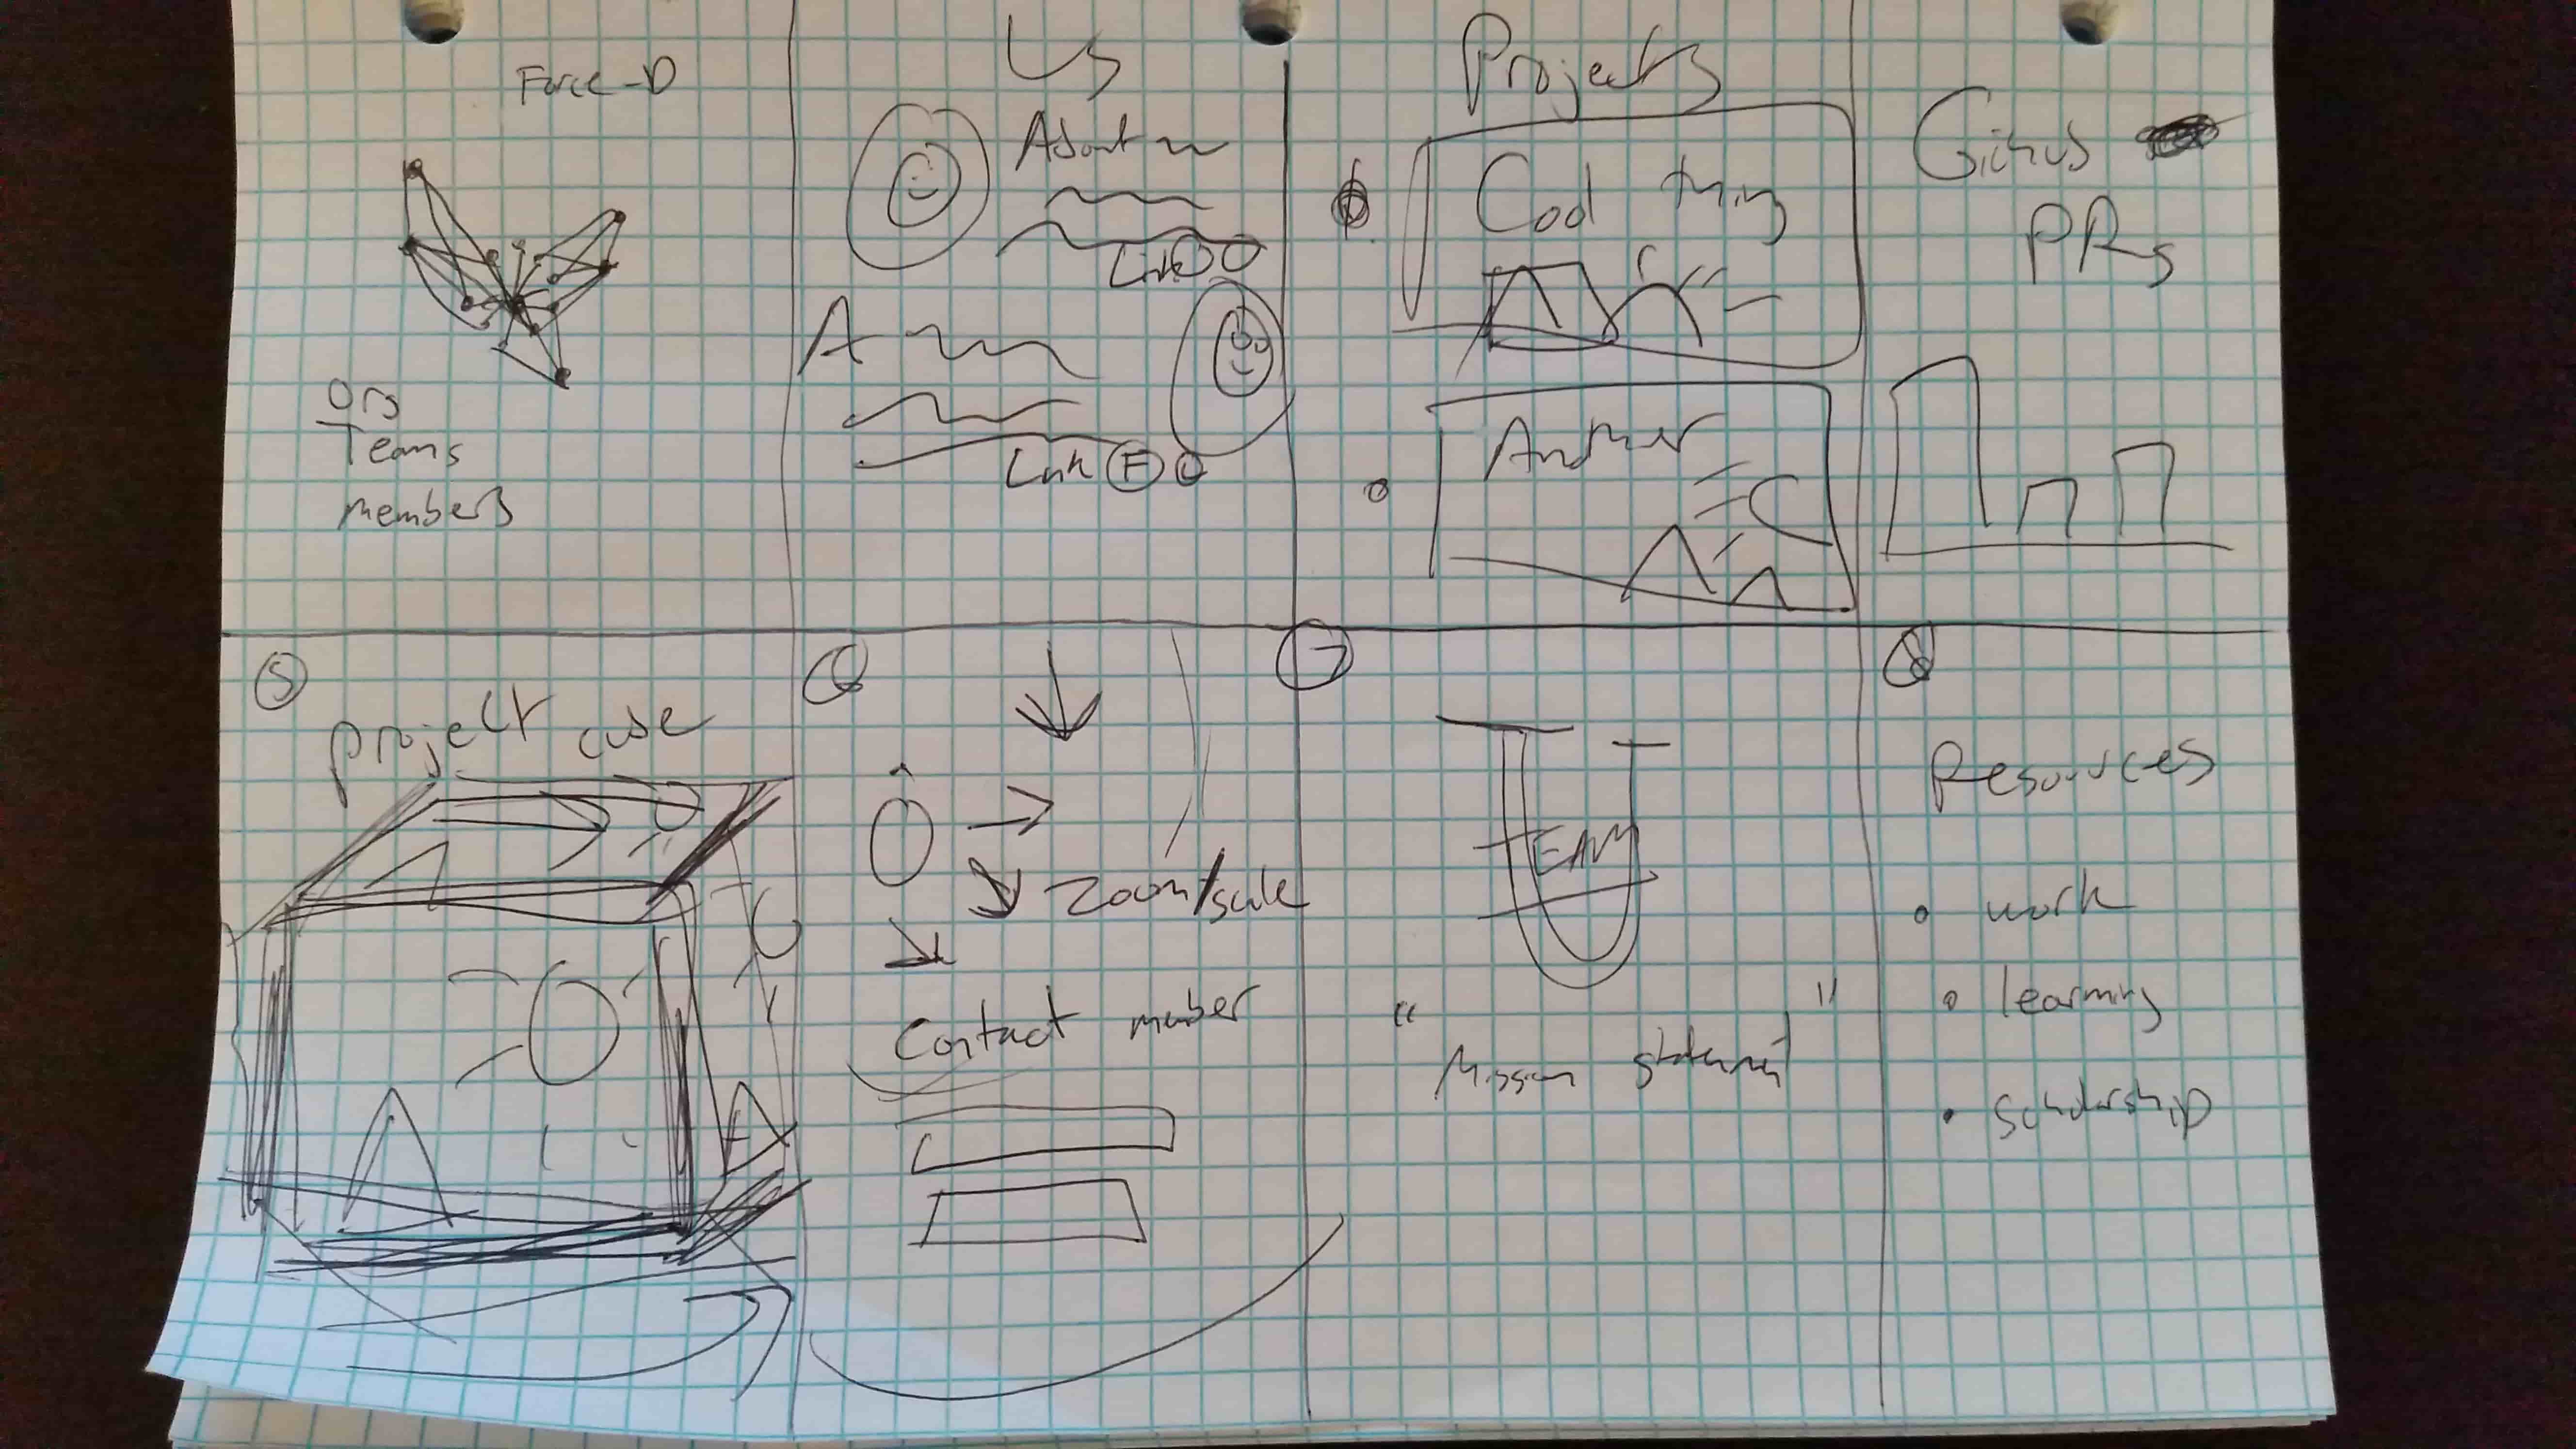 Force-D
Org
Teams
members
Us
About
Link
A
Link F
Projects
Cool thing
Another
Github
PRs
5
project cube
6
zoom/scale
Contact member
7
TEAM
"
"
Mission statement
8
Resources
work
learning
scholarship